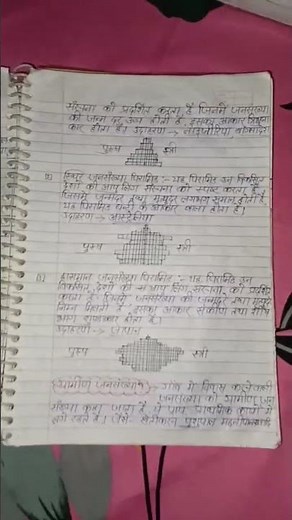 संरचना को प्रदर्शित करता है जिनमें जनसंख्या
की जन्म दर उच्च होती है, इसका आकार त्रिभुजा
कार होता है। उदाहरण → नाइजीरिया,
पुरुष स्त्री
स्थिर जनसंख्या पिरामिड :- यह पिरामिड उन विकसित
देशों की आयु लिंग संरचना को स्पष्ट करता है,
जिसमें जन्मदर मृत्युदर लगभग समान होती है
यह पिरामिड घंटी के आकार का होता है।
उदाहरण → आस्ट्रेलिया
पुरुष स्त्री
ह्रासमान जनसंख्या पिरामिड :- यह पिरामिड उन
विकसित देशों की आयु लिंग संरचना को प्रदर्शित
करता है। जिसमें जनसंख्या की जन्मदर तथा मृत्युदर
निम्न होती है, इसका आकार संकीर्ण तथा शीर्ष
होता है।
उदाहरण → जापान
पुरुष स्त्री
ग्रामीण जनसंख्या → गांव में निवास करने वाली
जनसंख्या को ग्रामीण जन
संख्या कहा जाता है, ये प्रायः प्राथमिक कार्यों में
लगे रहते हैं। जैसे